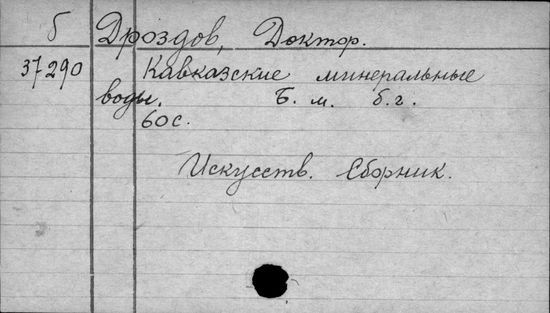 б Дроздов, Доктор.
37290 Кавказские минеральные
воды. Б. м. б. г.
60 с.
Искусств. Сборник.